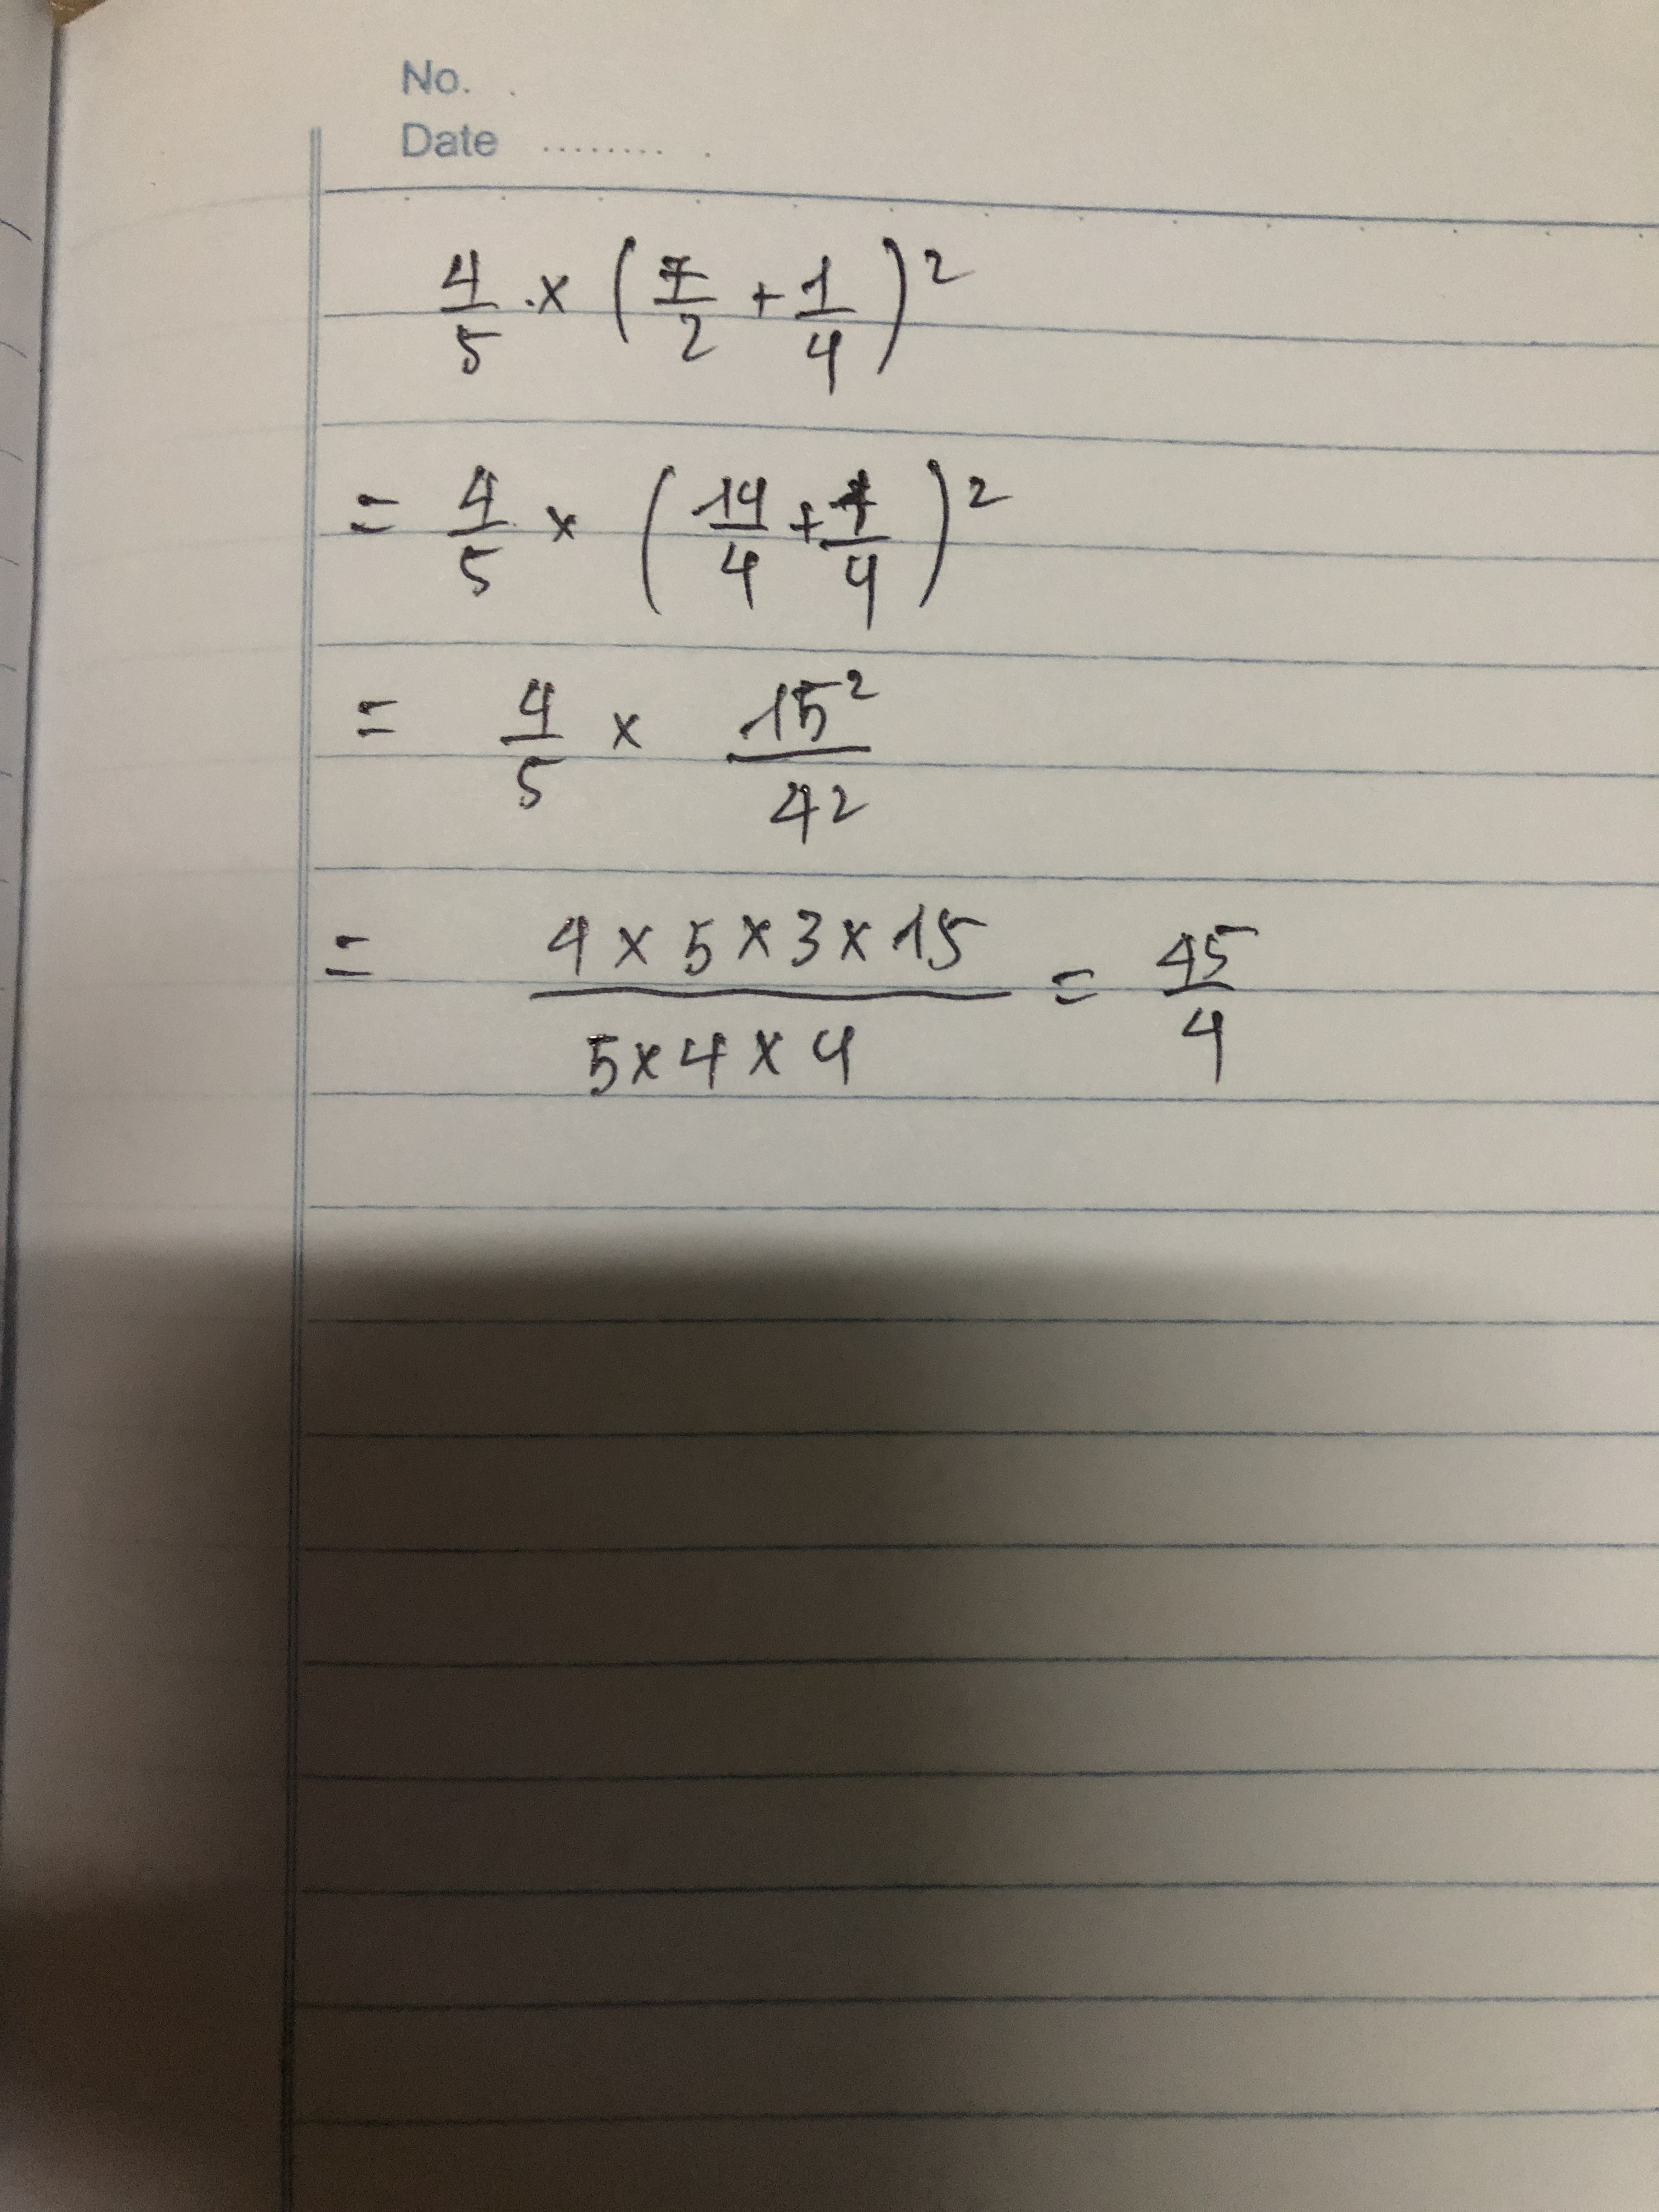 No.
Date ........
4/5 × (7/2 + 1/4)²
= 4/5 × (14/4 + 1/4)²
= 4/5 × 15²/4²
= (4 × 5 × 3 × 15)/(5 × 4 × 4) = 45/4